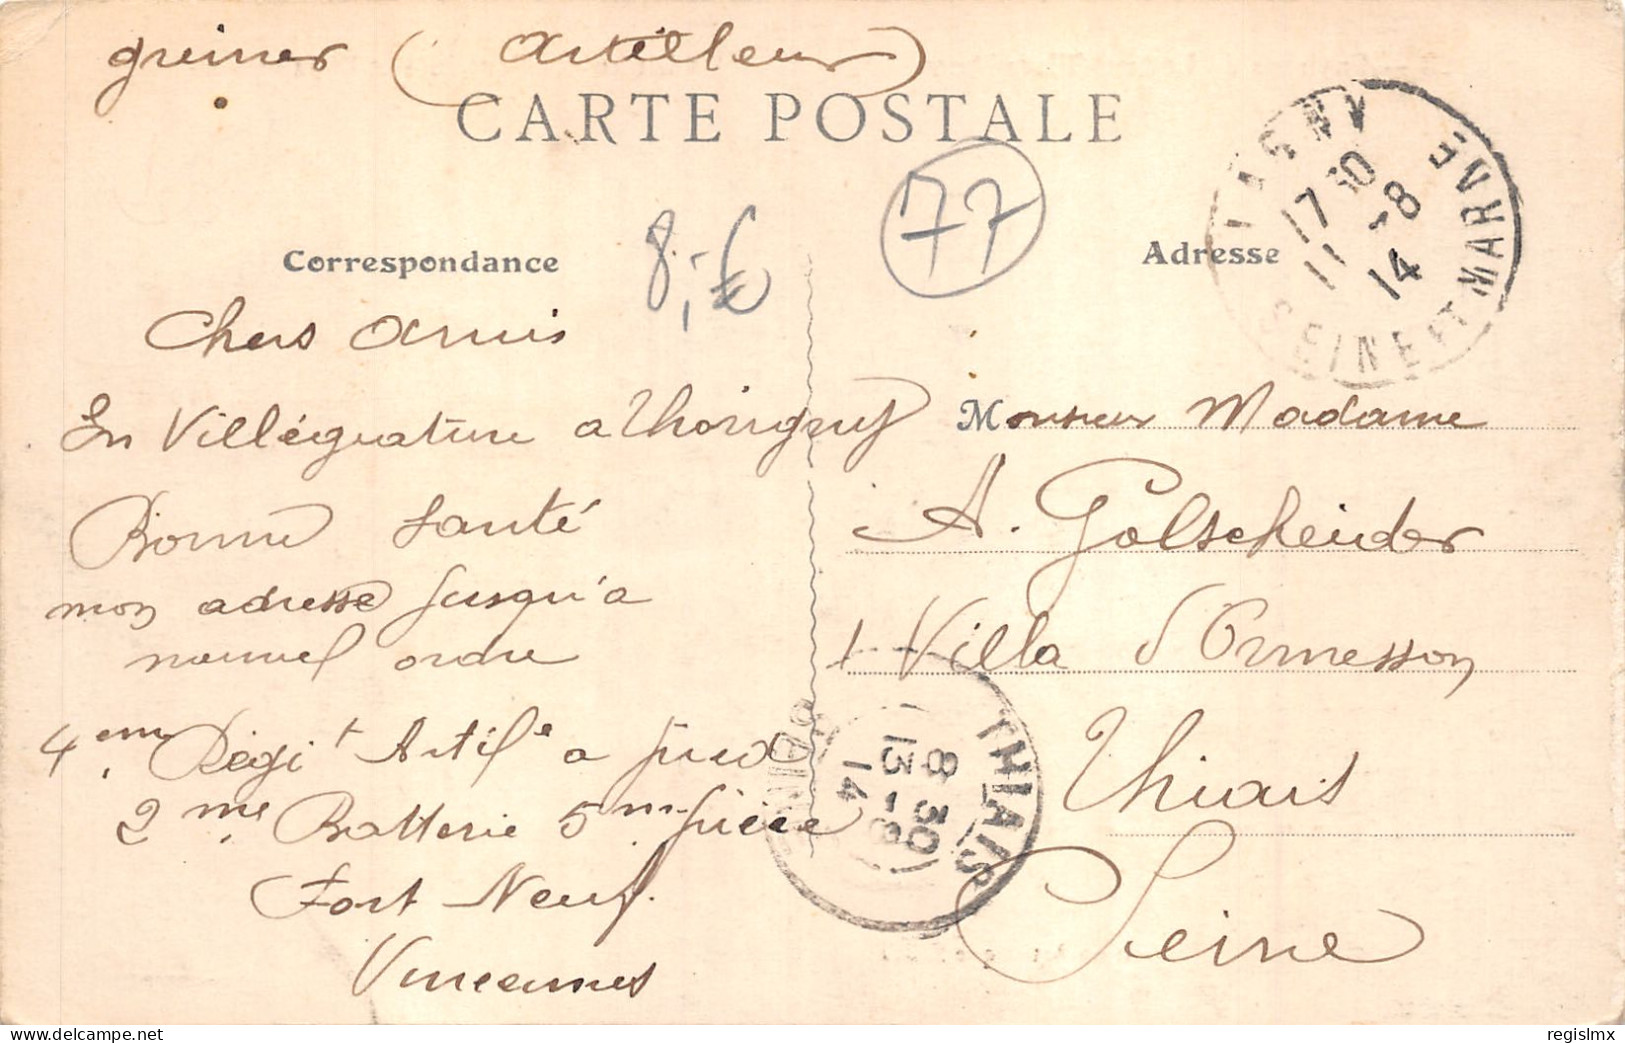 greiner (Artilleur)
CARTE POSTALE
77
8,-€
Correspondance
Adresse
LAGNY
17 30
11 -8
14
SEINE ET MARNE
Chers Amis
En Villégiature a Thorigny
Bonne Santé
mon adresse jusqu'a
nouvel ordre
4em Régit Artile a pied
2me Batterie 5me pièce
Fort Neuf.
Vincennes
Monsieur Madame
A. Golscheider
1 Villa d'Ormesson
Thiais
Seine
THIAIS
8 30
13 -8
14
SEINE
© delcampe.net
regislmx